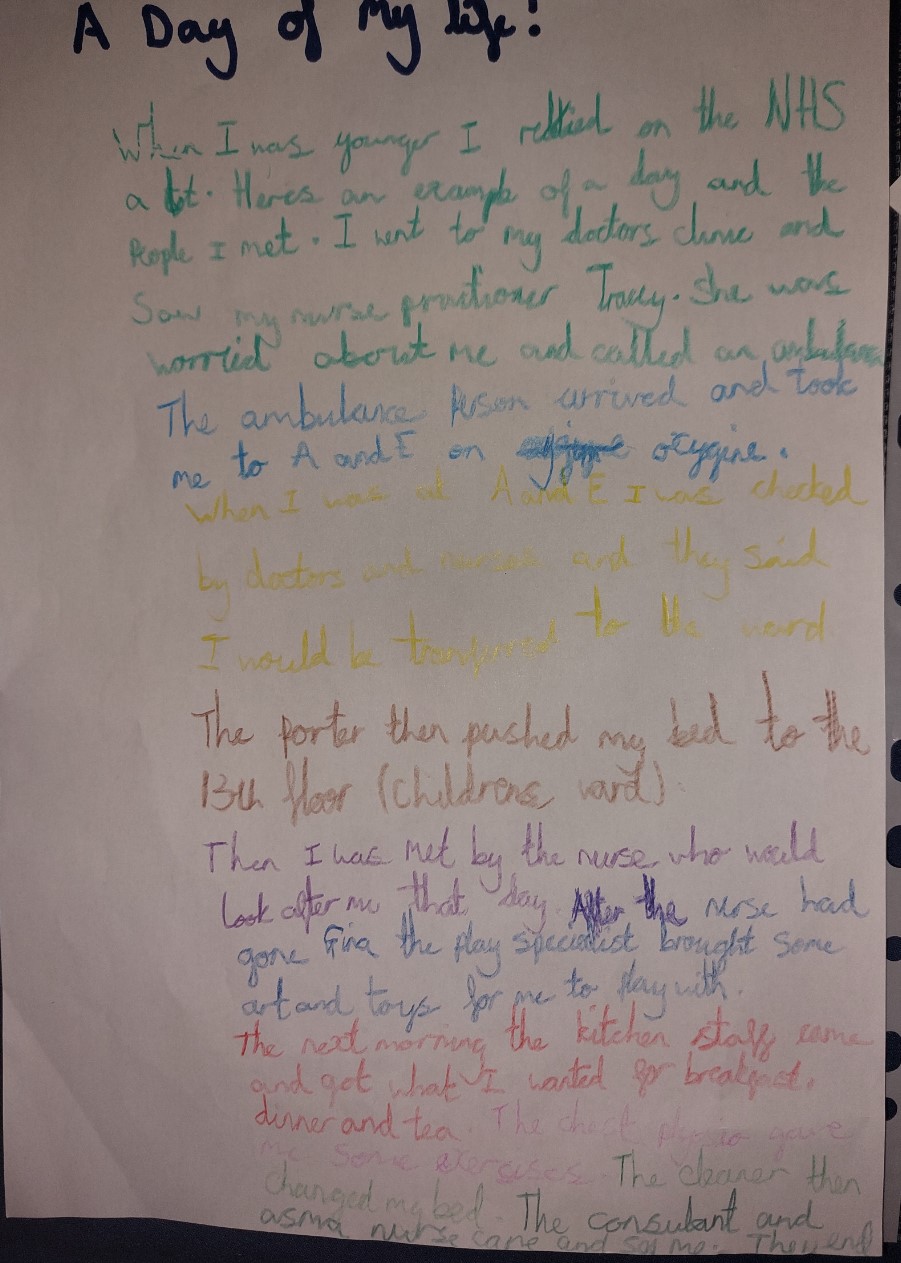 A Day of My life!
When I was younger I relied on the NHS
a lot. Heres an example of a day and the
People I met. I went to my doctors clinic and
Saw my nurse practioner Tracey. She was
worried about me and called an ambulance
The ambulance person arrived and took
me to A and E on oxygine.
When I was at A and E I was checked
by doctors and nurses and they said
I would be transferred to the ward
The porter then pushed my bed to the
13th floor (childrens ward).
Then I was met by the nurse who would
look after me that day. After the nurse had
gone Gina the play specialist brought some
art and toys for me to play with.
The next morning the kitchen staff came
and got what I wanted for breakfast,
dinner and tea. The chest physio gave
me some exersises. The cleaner then
changed my bed. The consultant and
asma nurse came and saw me. The end